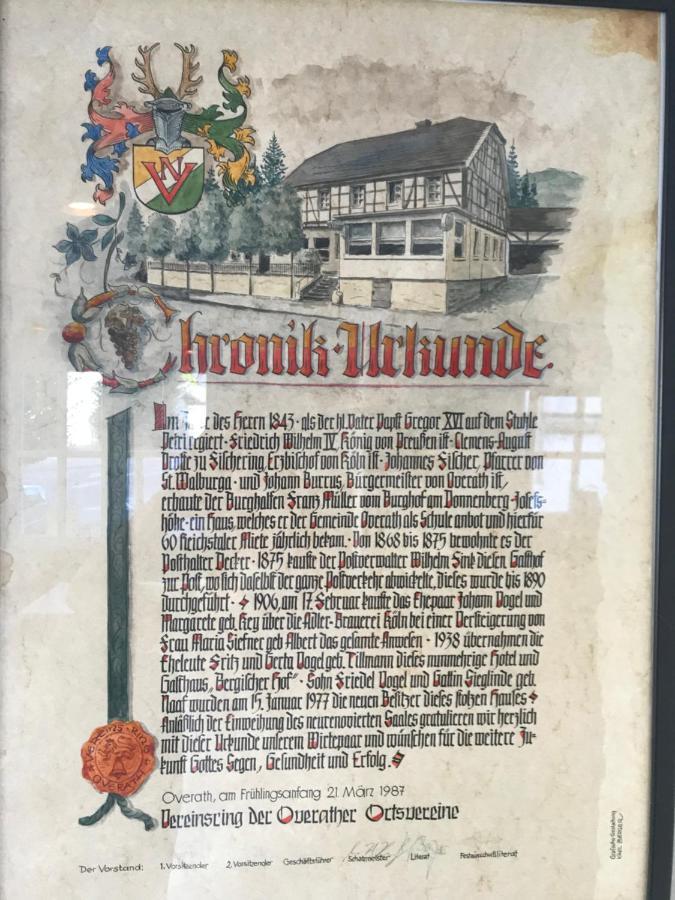 NV
Chronik-Urkunde
Im des Herrn 1843 · als der hl. Vater Papst Gregor XVI auf dem Stuhle
Petri regiert · Friedrich Wilhelm IV. König von Preußen ist · Clemens-August
Droste zu Fischering, Erzbischof von Köln ist · Johannes Fischer, Pfarrer von
St. Walburga · und Johann Burrus, Bürgermeister von Overath ist,
erbaute der Burghalfen Franz Müller vom Burghof am Donnenberg-Josefs=
höhe-ein Haus, welches er der Gemeinde Overath als Schule anbot und hierfür
60 Reichstaler Miete jährlich bekam. · Von 1868 bis 1875 bewohnte es der
Posthalter Decker · 1875 kaufte der Postverwalter Wilhelm Sink diesen Gasthof
zur Post, wo sich daselbst der ganze Postverkehr abwickelte, dieses wurde bis 1890
durchgeführt · 1906, am 17. Februar kaufte das Ehepaar Johann Vogel und
Margarete geb. Key über die Adler-Brauerei Köln bei einer Versteigerung von
Frau Maria Siefner geb. Albert das gesamte Anwesen · 1938 übernahmen die
Eheleute Fritz und Gerta Vogel geb. Tillmann dieses nunmehrige Hotel und
Gasthaus „Bergischer Hof" · Sohn Friedel Vogel und Gattin Sieglinde geb.
Naaf wurden am 15. Januar 1977 die neuen Besitzer dieses stolzen Hauses
Anläßlich der Einweihung des neurenovierten Saales gratulieren wir herzlich
mit dieser Urkunde unserem Wirtepaar und wünschen für die weitere Zu-
kunft Gottes Segen, Gesundheit und Erfolg.
Overath, am Frühlingsanfang 21. März 1987
Vereinsring der Overather Ortsvereine
Vereins-Ring
OVERATH
Der Vorstand: 1. Vorsitzender 2. Vorsitzender Geschäftsführer Schatzmeister Literat Festausschußliterat
Grafische Gestaltung